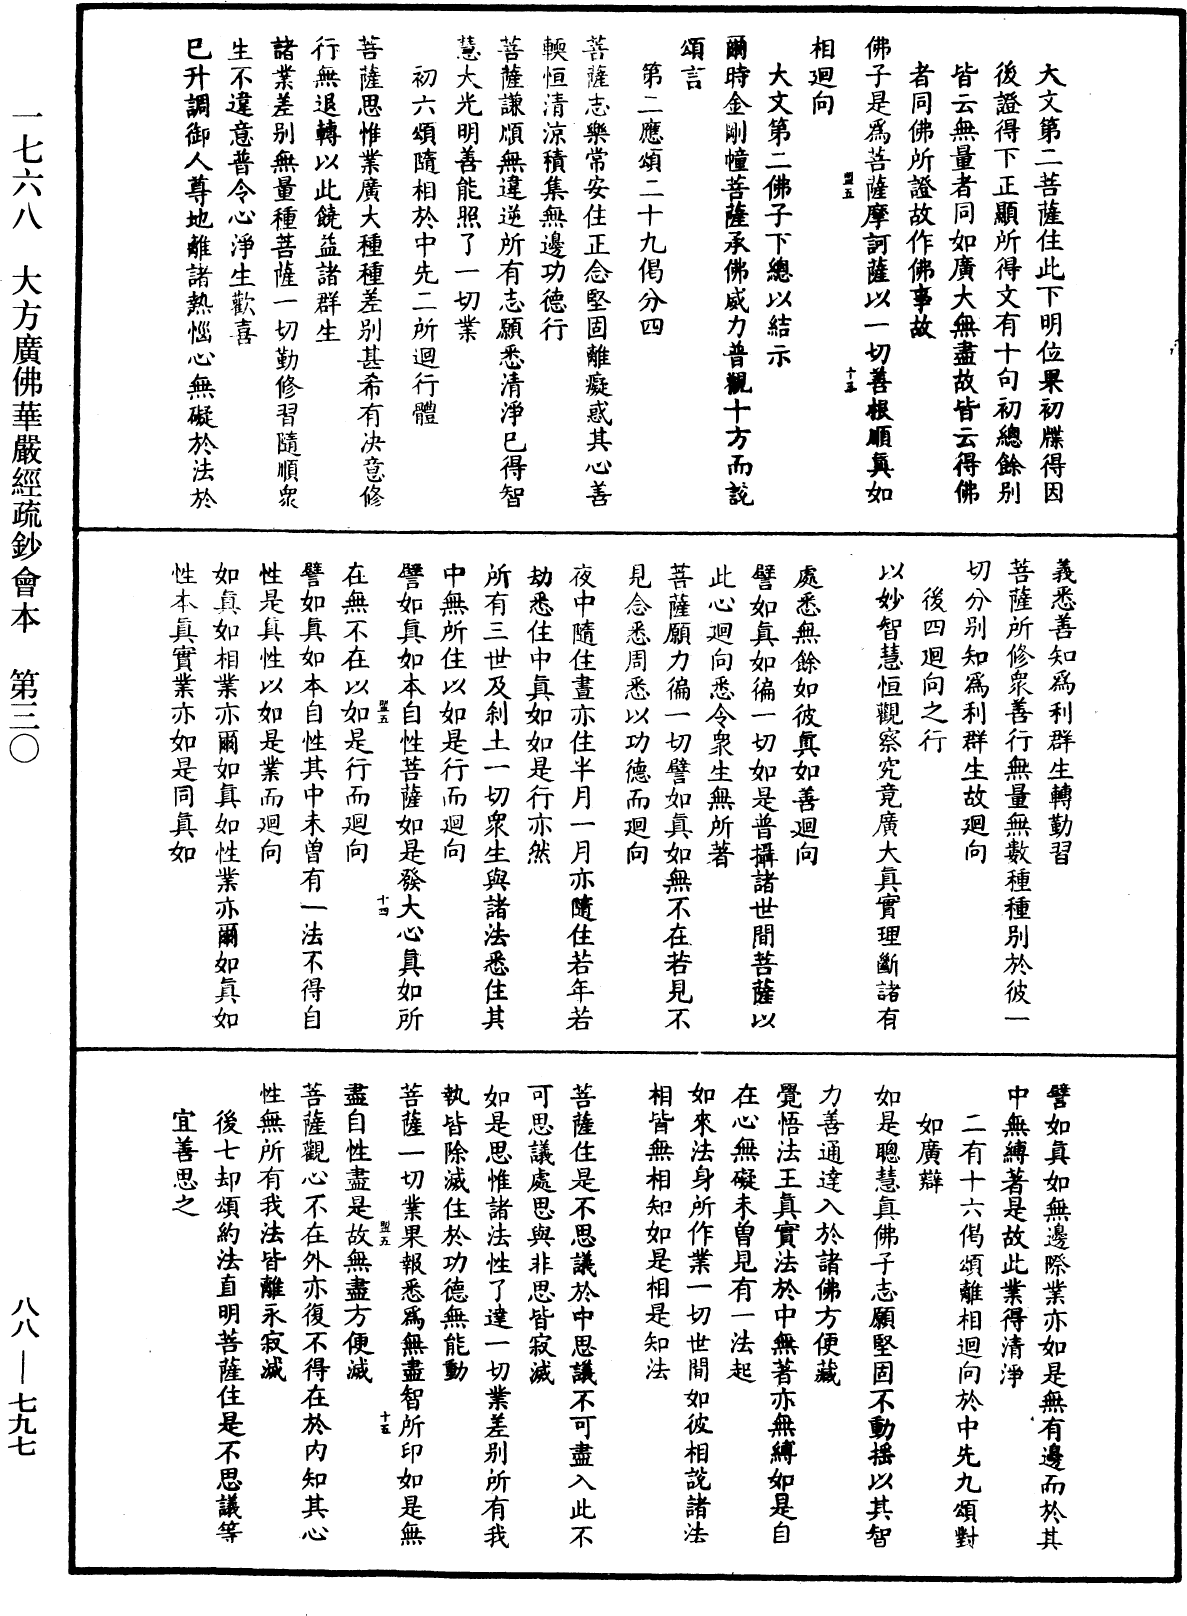 大文第二菩薩住此下明位果初牒得因
後證得下正顯所得文有十句初總餘別
皆云無量者同如廣大無盡故皆云得佛
者同佛所證故作佛事故
佛子是爲菩薩摩訶薩以一切善根順眞如
相迴向
盟五
十三
大文第二佛子下總以結示
爾時金剛幢菩薩承佛威力普觀十方而說
頌言
第二應頌二十九偈分四
菩薩志樂常安住正念堅固離癡惑其心善
輭恒清涼積集無邊功德行
菩薩謙順無違逆所有志願悉清淨已得智
慧大光明善能照了一切業
初六頌隨相於中先二所迴行體
菩薩思惟業廣大種種差別甚希有决意修
行無退轉以此饒益諸群生
諸業差別無量種菩薩一切勤修習隨順衆
生不違意普令心淨生歡喜
已升調御人尊地離諸熱惱心無礙於法於
義悉善知爲利群生轉勤習
菩薩所修衆善行無量無數種種別於彼一
切分別知爲利群生故迴向
後四迴向之行
以妙智慧恒觀察究竟廣大眞實理斷諸有
處悉無餘如彼眞如善迴向
譬如眞如徧一切如是普攝諸世間菩薩以
此心迴向悉令衆生無所著
菩薩願力徧一切譬如眞如無不在若見不
見念悉周悉以功德而迴向
夜中隨住晝亦住半月一月亦隨住若年若
劫悉住中眞如如是行亦然
所有三世及刹土一切衆生與諸法悉住其
中無所住以如是行而迴向
譬如眞如本自性菩薩如是發大心眞如所
在無不在以如是行而迴向
盟五
十四
譬如眞如本自性其中未曾有一法不得自
性是眞性以如是業而迴向
如眞如相業亦爾如眞如性業亦爾如眞如
性本眞實業亦如是同眞如
譬如眞如無邊際業亦如是無有邊而於其
中無縛著是故此業得清淨
二有十六偈頌離相迴向於中先九頌對
如廣辯
如是聰慧眞佛子志願堅固不動搖以其智
力善通達入於諸佛方便藏
覺悟法王眞實法於中無著亦無縛如是自
在心無礙未曾見有一法起
如來法身所作業一切世間如彼相說諸法
相皆無相知如是相是知法
菩薩住是不思議於中思議不可盡入此不
可思議處思與非思皆寂滅
如是思惟諸法性了達一切業差別所有我
執皆除滅住於功德無能動
菩薩一切業果報悉爲無盡智所印如是無
盡自性盡是故無盡方便滅
盟五
十五
菩薩觀心不在外亦復不得在於內知其心
性無所有我法皆離永寂滅
後七却頌約法直明菩薩住是不思議等
宜善思之
一七六八　大方廣佛華嚴經疏鈔會本　第三〇
八八—七九七